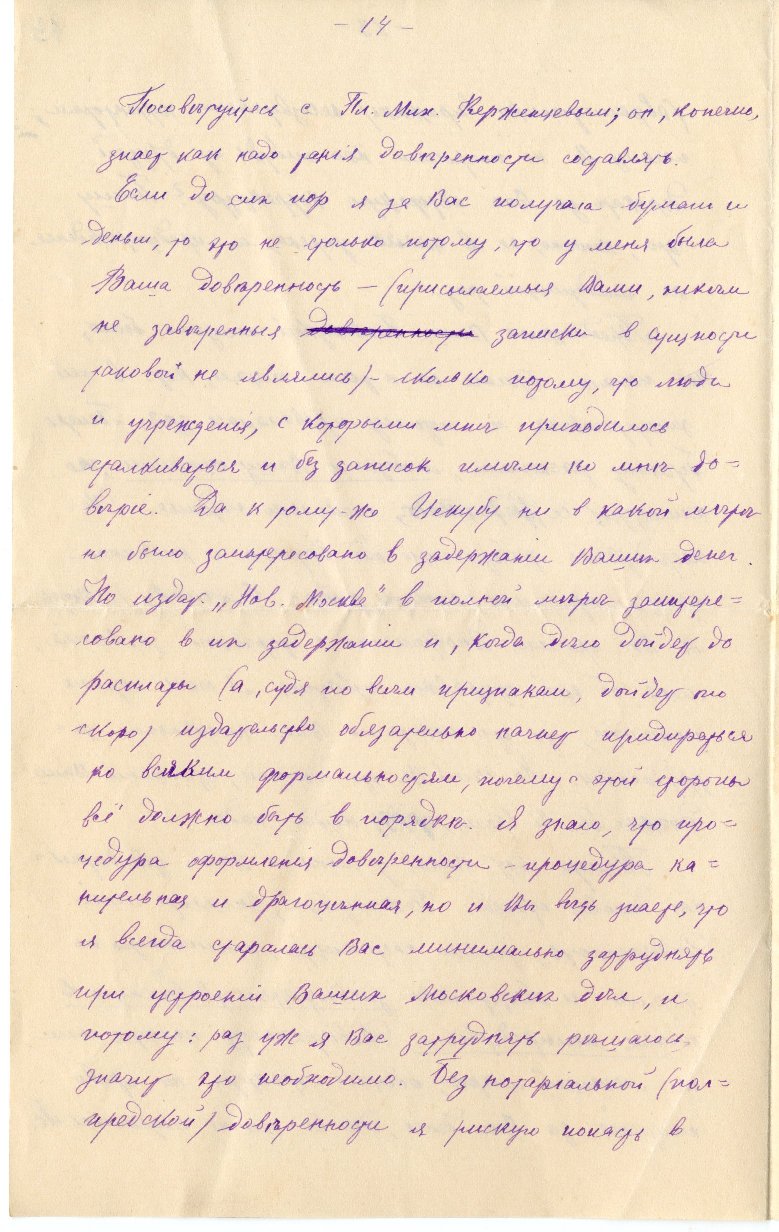 - 14 -
Посовѣтуйтесь с Пл. Мих. Керженцевым; он, конечно,
знает как надо такія довѣренности составлять.
Если до сих пор я за Вас получала бумаги и
деньги, то это не столько потому, что у меня была
Ваша довѣренность — (присылаемыя Вами, никѣм
не завѣренныя довѣренности записки в сущности
таковой не являлись) - сколько потому, что люди
и учрежденія, с которыми мнѣ приходилось
сталкиваться и без записок имѣли ко мнѣ до=
вѣріе. Да к тому-же Цекубу ни в какой мѣрѣ
не было заинтересовано в задержаніи Ваших денег.
Но издат. „Нов. Москва" в полной мѣрѣ заинтере=
совано в их задержаніи и, когда дѣло дойдет до
расплаты (а, судя по всѣм признакам, дойдет оно
скоро) издательство обязательно начнет придираться
ко всяким формальностям, почему с этой стороны
всё должно быть в порядкѣ. Я знаю, что про=
цедура оформленія довѣренности - процедура ка=
нительная и драгоцѣнная, но и Вы вѣдь знаете, что
я всегда старалась Вас минимально затруднять
при устроеніи Ваших Московских дѣл, и
потому: раз уж я Вас затруднять рѣшаюсь
значит это необходимо. Без нотаріальной (пол=
предской) довѣренности я рискую попасть в